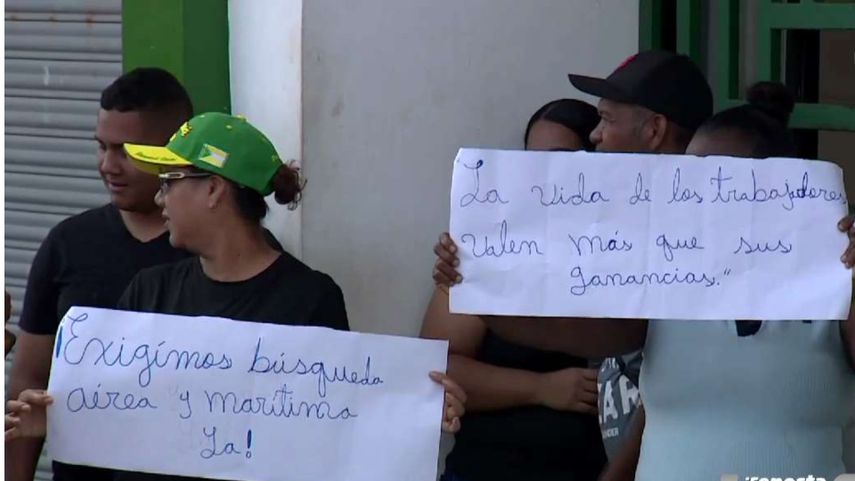 ¡Exigimos búsqueda
aérea y marítima
Ya!
La vida de los trabajadores
valen más que sus
ganancias."